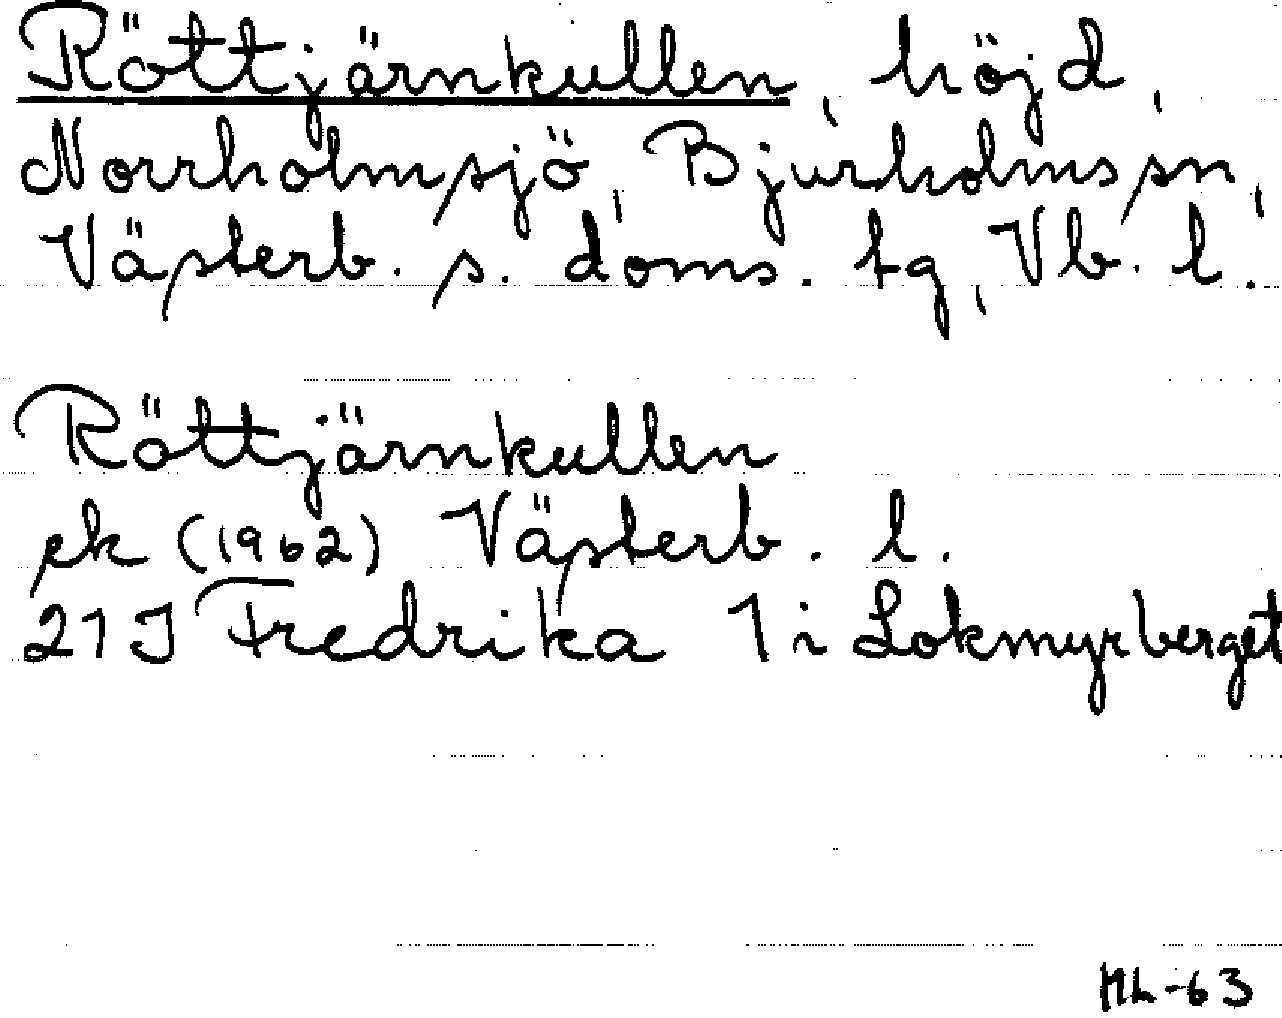 Röttjärnkullen, höjd,
Norrholmsjö, Bjurholms sn,
Västerb. s. doms. tg, Vb. l.
Röttjärnkullen
ek (1962) Västerb. l.
21J Fredrika 1 i Lokmyrberget
ML-63